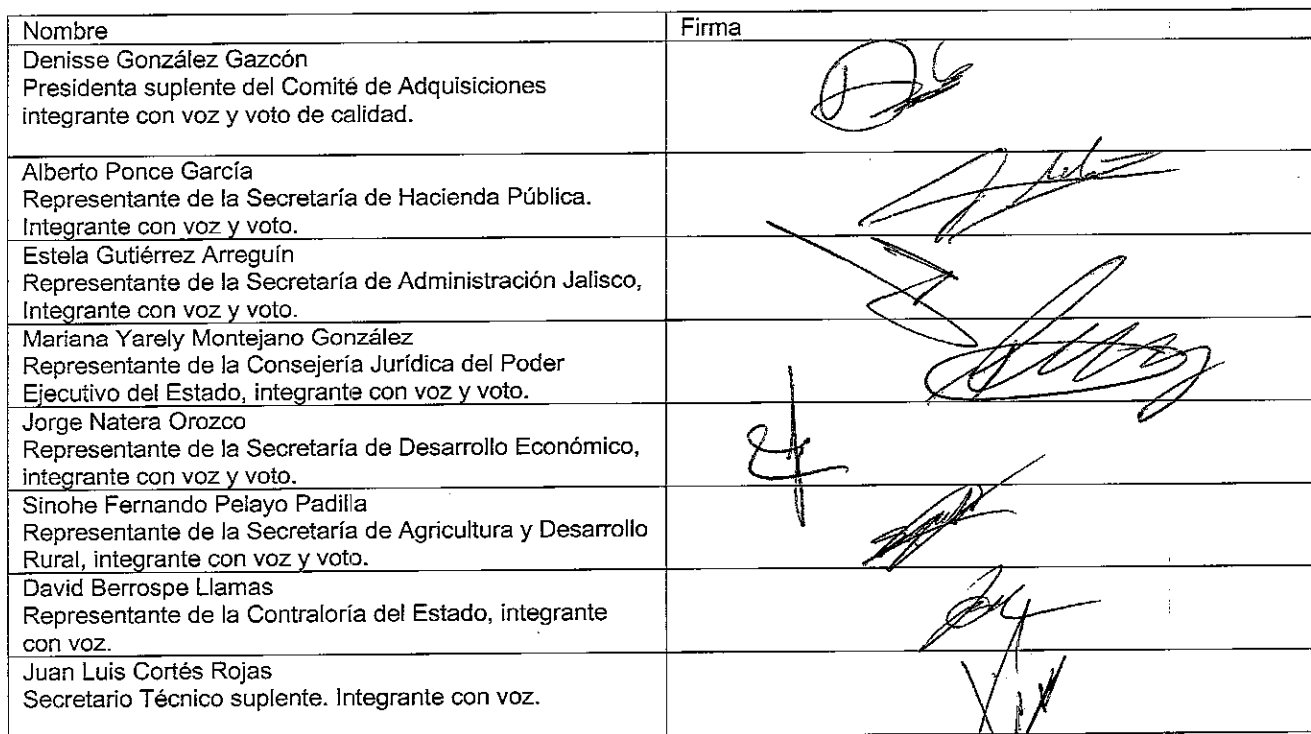 Nombre
Firma
Denisse González Gazcón
Presidenta suplente del Comité de Adquisiciones
integrante con voz y voto de calidad.
Alberto Ponce García
Representante de la Secretaría de Hacienda Pública.
Integrante con voz y voto.
Estela Gutiérrez Arreguín
Representante de la Secretaría de Administración Jalisco,
Integrante con voz y voto.
Mariana Yarely Montejano González
Representante de la Consejería Jurídica del Poder
Ejecutivo del Estado, integrante con voz y voto.
Jorge Natera Orozco
Representante de la Secretaría de Desarrollo Económico,
integrante con voz y voto.
Sinohe Fernando Pelayo Padilla
Representante de la Secretaría de Agricultura y Desarrollo
Rural, integrante con voz y voto.
David Berrospe Llamas
Representante de la Contraloría del Estado, integrante
con voz.
Juan Luis Cortés Rojas
Secretario Técnico suplente. Integrante con voz.